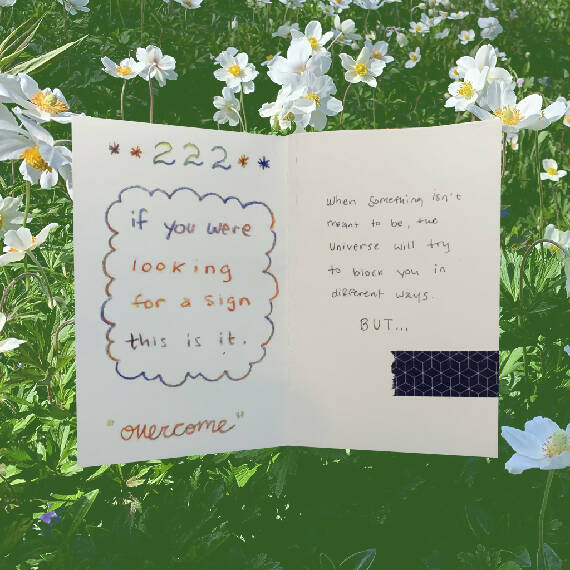 * * 222 * *
if you were
looking
for a sign
this is it.
"overcome"
When something isn't
meant to be, the
universe will try
to block you in
different ways.
BUT...